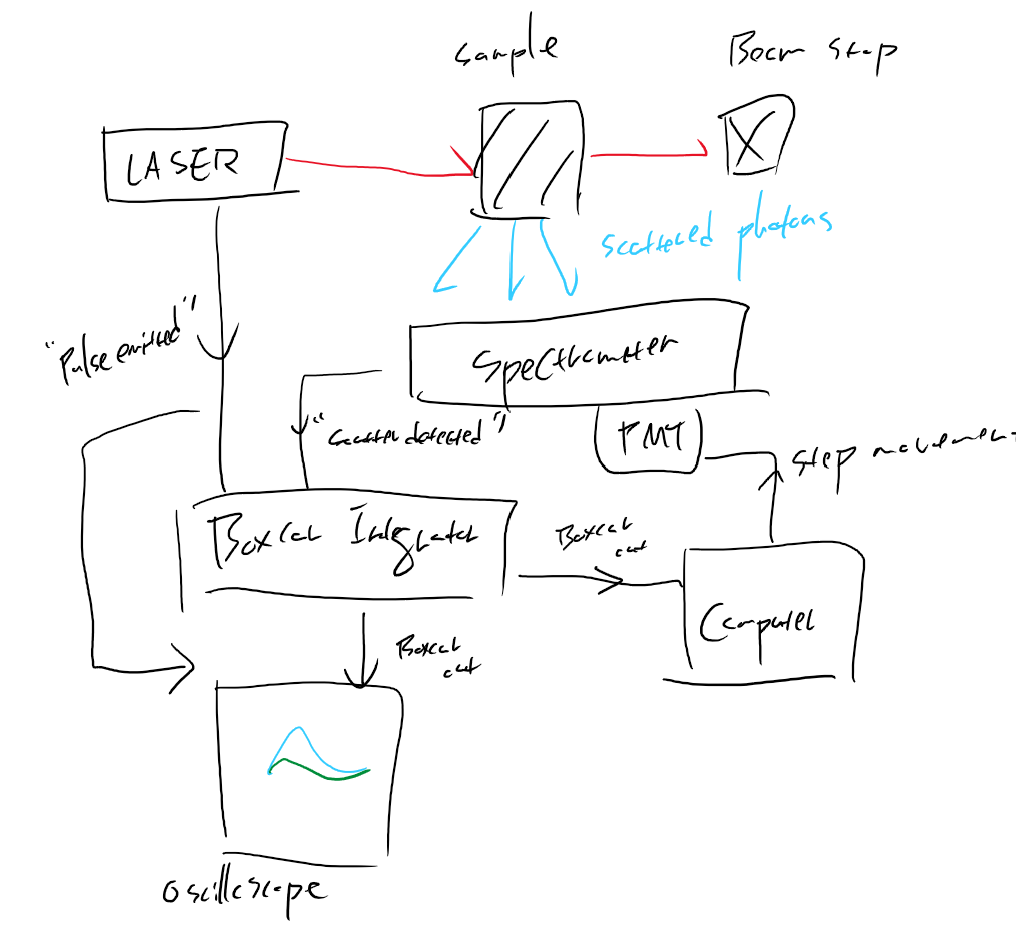 sample
Beam stop
LASER
scattered photons
"Pulse emitted"
Spectrometter
"scatter detected"
PMT
step movement
Boxcar Integrator
Boxcar
out
Computer
Boxcar
out
oscilloscope